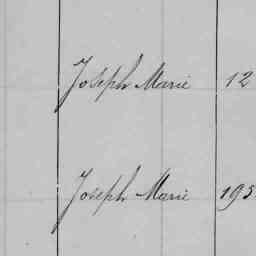 Joseph Marie 12
Joseph Marie 195